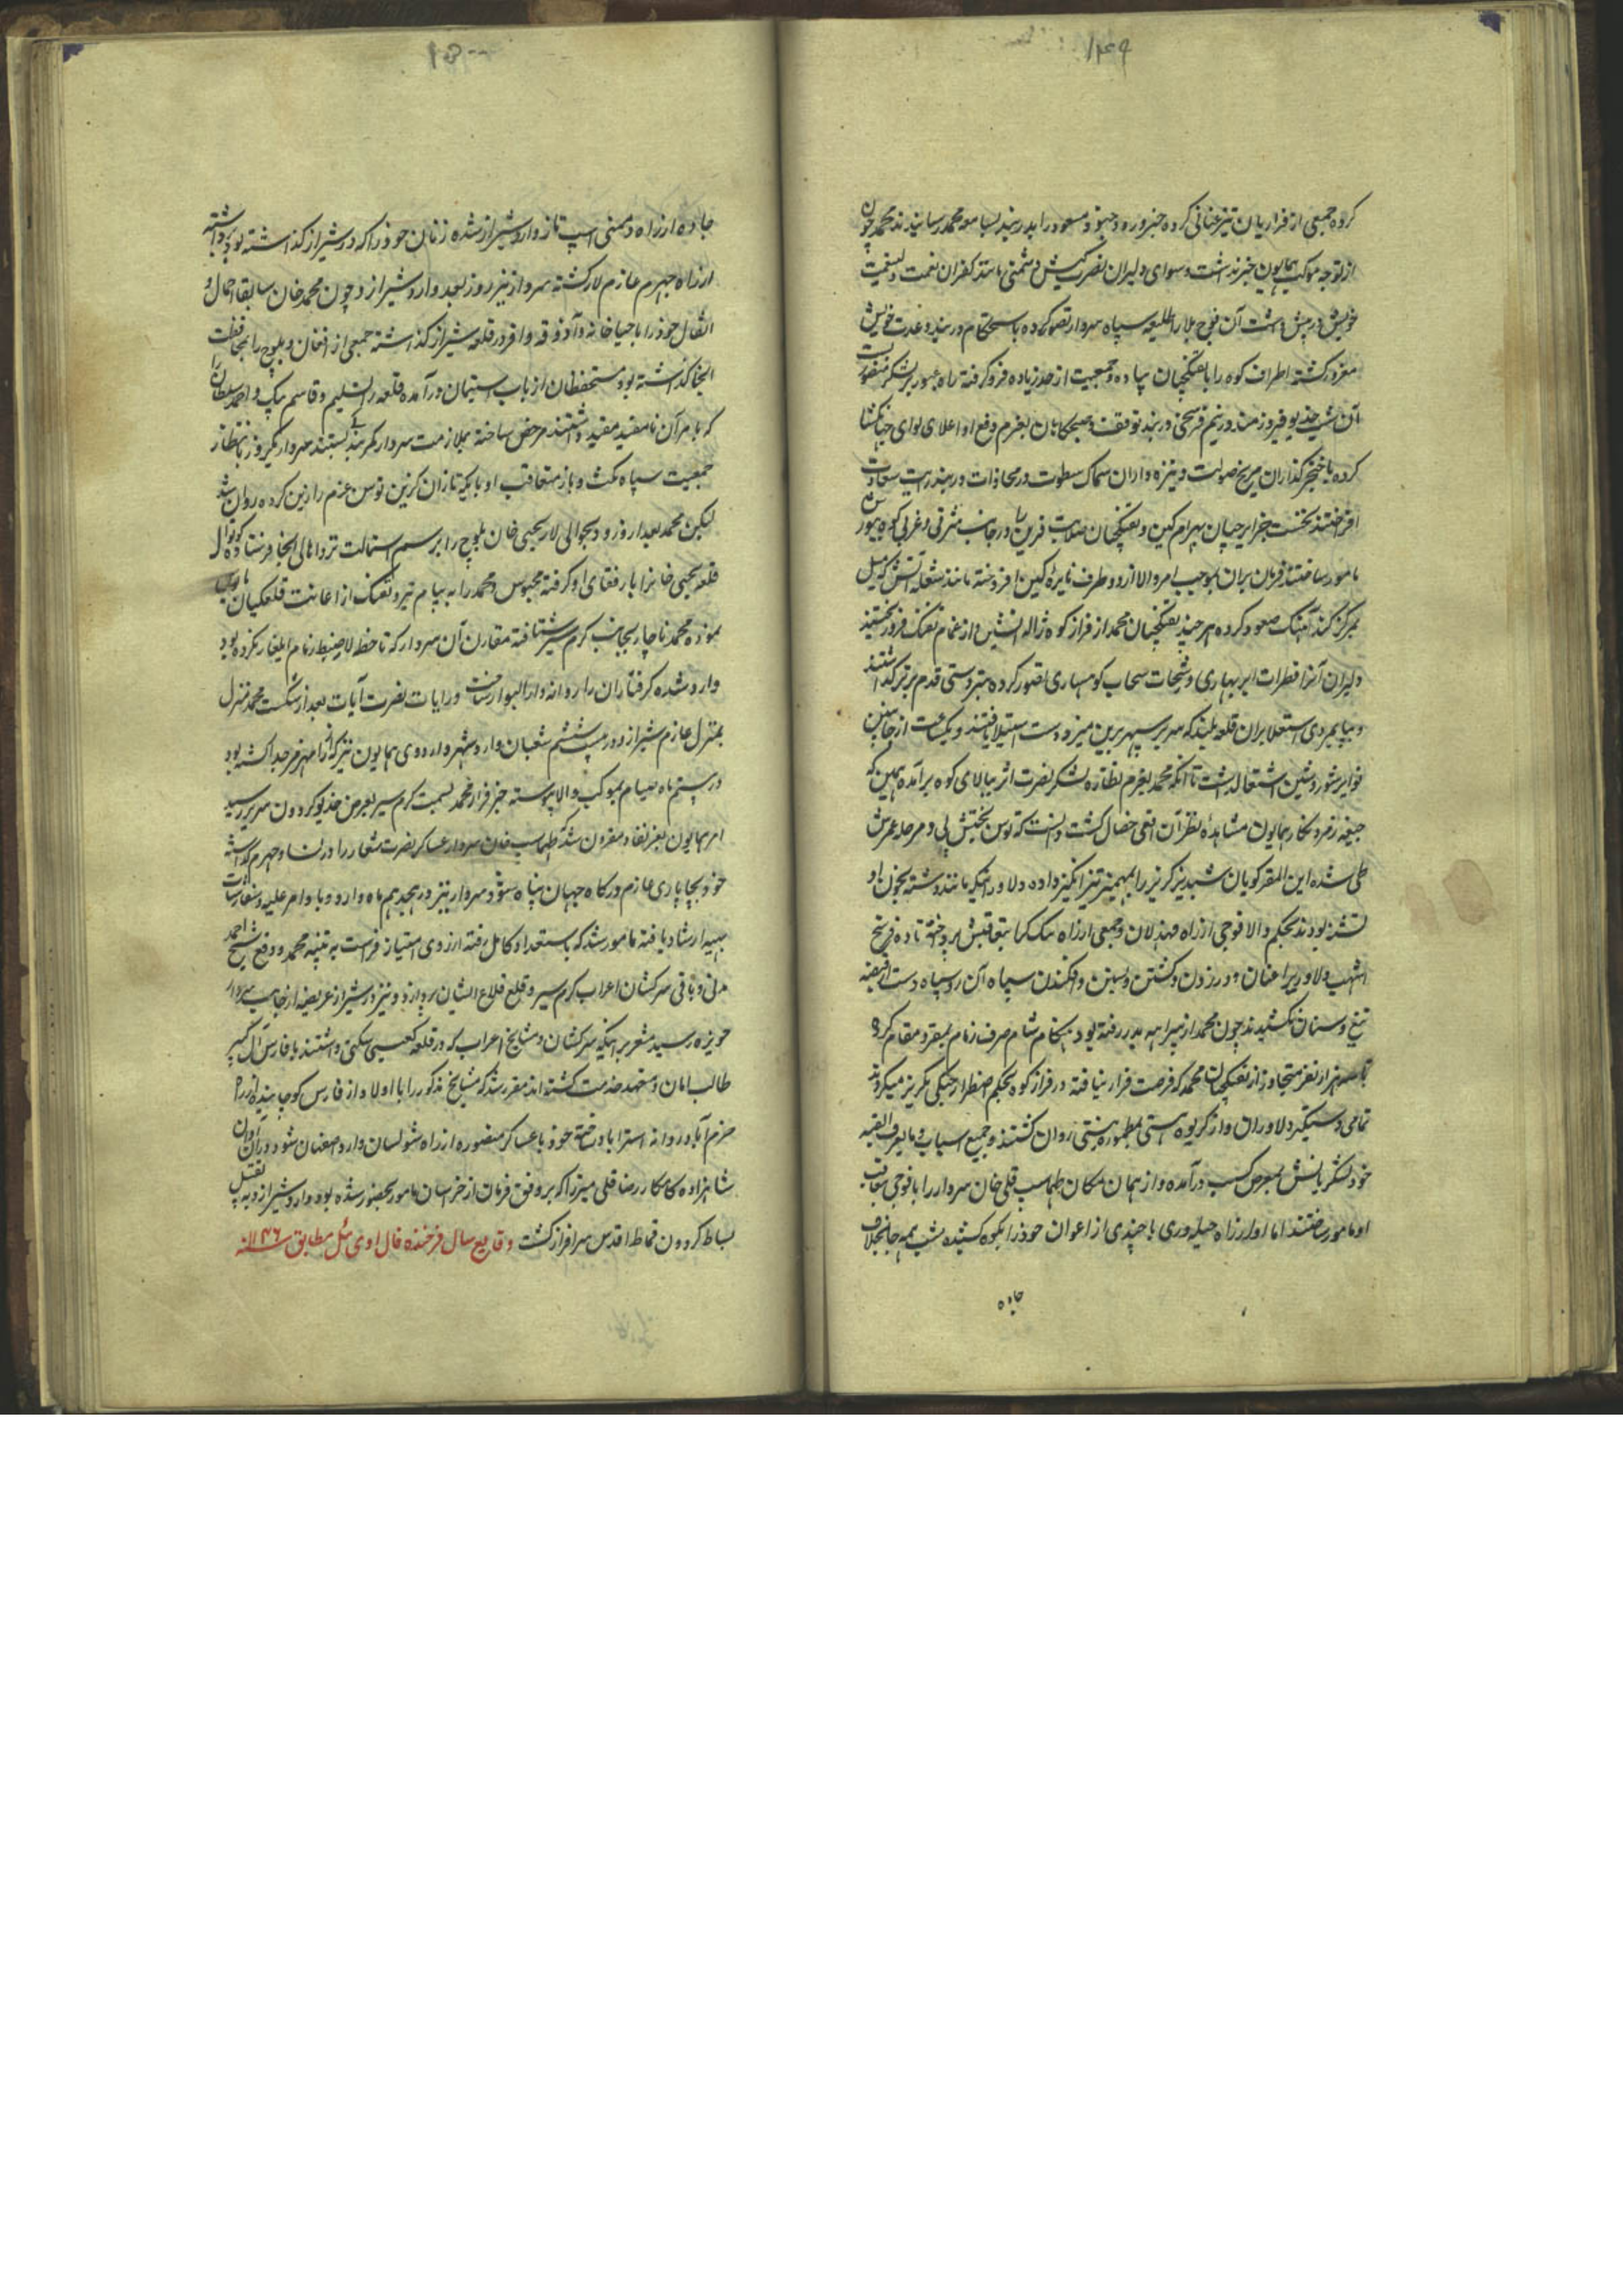 ۱۴۹
کرده جمعی از فراریان تیزعنانی کرده خبر ورود جنود مسعود را بدربند بسامعه محمد رسانیدند محمد چون
از توجه موکب همایون خبر نداشت و سوای دلیران نصرت کیش دشمنی مانند کفران نعمت ولینعمت
خویش در پیش داشت آن فوج بلا را طلیعه سپاه سردار تصور کرده باستحکام دربند و عدت خویش
مغرور گشته اطراف کوه را با تفنگچیان پیاده و جمعیت از حد زیاده فرو گرفته راه عبور بر لشکر منصور بست
آن شب خدیو فیروزمند در نیم فرسخی دربند توقف و صبحگاهان بعزم دفع او اعلای لوای جهانگشا
کرده با خنجرگذاران مریخ صولت و نیزه داران سماک سطوت در محاذات دربند رایت سعادت
افراختند نخست جزایرچیان بهرام کین و تفنگچیان صلابت قرین را در جانب شرقی و غربی کوه بیورش
مامور ساختند فرمان بران بموجب امر والا از دو طرف نایره کین افروخته مانند شعله آتش که میل
بمرکز کند آهنگ صعود کرده هر چند تفنگچیان محمد از فراز کوه ژاله آتشین از غمام تفنگ فرو ریختند
دلیران آنرا قطرات ابر بهاری و رشحات سحاب کوهساری تصور کرده بتردستی قدم برتر گذاشتند
و بپایمردی استعلا بران قلعه بلند که سر بر سپهر برین میزد دست استیلا یافتند و یکساعت از جانبین
نوایر شور و شین اشتعال داشت تا آنکه محمد بعزم نظاره لشکر نصرت اثر ببالای کوه برآمده همین که
جیغه زمرد نگار همایون مشاهده نظر آن افعی خصال گشت دانست که توسن بختش پی و مرحله عمرش
طی شده این المفر گویان شبدیز گریز را بمهمیز تیز انگیز داده دلاورانیکه مانند دشنه بخون او
تشنه بودند بحکم والا فوجی از راه مهذلان و جمعی از راه تنک تکا بتعاقبش پرداخته تا ده فرسخ
اشهب دلاوری را عنان و در زدن و کشتن و بستن و افکندن سپاه آن روسیاه دست از قبضه
تیغ و سنان نکشیدند چون محمد از بیراهه بدر رفته بود هنگام شام صرف زمام بمقر و مقام کردند
سه هزار نفر متجاوز از تفنگچیان محمد که فرصت فرار نیافته در فراز کوه بحکم اضطرار جنگی بگریز میکردند
تمامی دستگیر دلاوران و از گریوه هستی بمطموره نیستی روان گشتند و جمیع اسباب و ما یعرف القیمه
خود لشکریانش بمعرض کسب درآمده و از همان مکان طهماسب قلی خان سردار را با فوجی بتعاقب
او مامور ساختند اما او از راه حیله وری با چندی از اعوان خود را بکوه کشیده شب بمه جا بخلاف
جاده
۱۵۰
جاده از راه دشمنی اسپ تاز وارد شیراز شده زنان خود را که در شیراز گذاشته بود برداشته
از راه جهرم عازم لار گشته سردار نیز روز بعد وارد شیراز و چون محمد خان سابقا احمال و
اثقال خود را با جباخانه و آذوقه وافر در قلعه شیراز گذاشته جمعی از افغان و بلوچ را بمحافظت
آنجا گذاشته بود مستحفظان از باب استیمان درآمده قلعه را تسلیم و قاسم بیک و احمد سلطان را
که بامر آن نامقید مقید داشتند مرخص ساخته بملازمت سردار کمر بندگی بستند سردار یکروز بانتظار
جمعیت سپاه مکث و باز متعاقب او با یکه تازان گزین توسن عزم را زین کرده روان شد
لیکن محمد بعد از ورود بحوالی لار یحیی خان بلوچ را برسم استمالت نزد اهالی آنجا فرستاده کوتوال
قلعه یحیی خانرا با رفقای او گرفته محبوس و محمد را به پیام تیر و تفنگ از اعانت قلعگیان مایوس
نموده محمد ناچار بجانب گرمسیر شتافته مقارن آن سردار که تا خط لار ضبط زمام ایلغار نکرده بود
وارد شده گرفتاران را روانه دارالبوار ساخت و رایات نصرت آیات بعد از شکست محمد منزل
بمنزل عازم شیراز و در بیست ششم شعبان وارد شهر و اردوی همایون نیز که از رامهرمز جدا گشته بود
در بیستم ماه صیام بموکب والا پیوسته خبر فرار محمد بسمت گرمسیر بعرض خدیو گردون سریر رسید
امر همایون بعز نفاذ مقرون شد که طهماسب خان سردار عساکر نصرت شعار را در فسا و جهرم گذاشته
خود بچاپاری عازم درگاه جهان پناه شود سردار نیز در هیجدهم ماه وارد و باوامر علیه و سفارشات
بهیه ارشاد یافته مامور شد که باستعداد کامل رفته از روی امتیاز فراست به تنبیه محمد و دفع شیخ احمد
مدنی و باقی سرکشان اعراب گرمسیر و قلع قلاع ایشان پردازد و نیز در شیراز عریضه از جانب سردار
حویزه رسید مشعر بر اینکه سرکشان و مشایخ اعراب که در قلعه کعبیی سکنی داشتند با فارس آل کثیر
طالب امان و متعهد خدمت گشته اند مقرر شد که مشایخ مذکور را با اولاد از فارس کوچانیده از راه
خرم آباد روانه استراباد ساخته خود با عساکر منصوره از راه شولستان وارد اصفهان شود و در آن اوان
شاهزاده کامکار رضا قلی میرزا که بر وفق فرمان از خراسان مامور بحضور شده بود وارد شیراز و به تقبیل
بساط گردون قماط اقدس سرافراز گشت وقایع سال فرخنده فال اودی ئیل مطابق سنه ۱۱۴۶